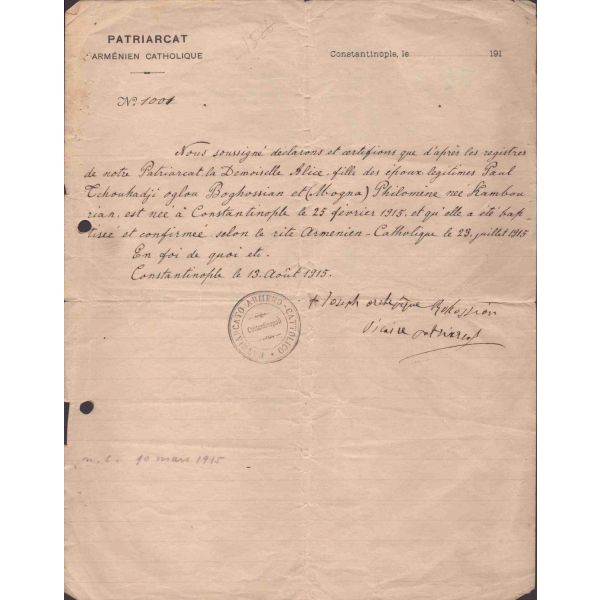 PATRIARCAT
ARMÉNIEN CATHOLIQUE
Constantinople, le 191
№ 1001
Nous soussigné declarons et certifions que d'après les registres
de notre Patriarcat la Demoiselle Alice, fille des époux legitimes Paul
Tchouhadji oglou Boghossian et (M-ogna) Philomène nee Kambou
rian, est née à Constantinople le 25 février 1915, et qu'elle a été bap
tisée et confirmée selon le rite Armenien-Catholique le 23 juillet 1915
En foi de quoi etc.
Constantinople le 13 Août 1915.
+ Joseph archevêque
Vicaire patriarcal
PATRIARCATO ARMENO-CATTOLICO
Costantinopoli
10 mars 1915